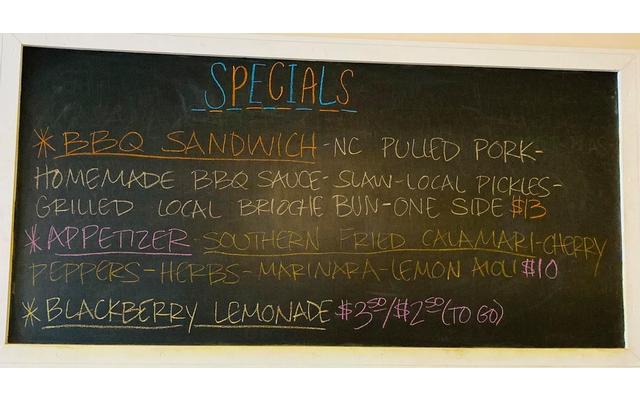 SPECIALS
* BBQ SANDWICH - NC PULLED PORK -
HOMEMADE BBQ SAUCE - SLAW - LOCAL PICKLES -
GRILLED LOCAL BRIOCHE BUN - ONE SIDE $13
* APPETIZER - SOUTHERN FRIED CALAMARI - CHERRY
PEPPERS - HERBS - MARINARA - LEMON AIOLI $10
* BLACKBERRY LEMONADE $3.50/$2.50 (TO GO)